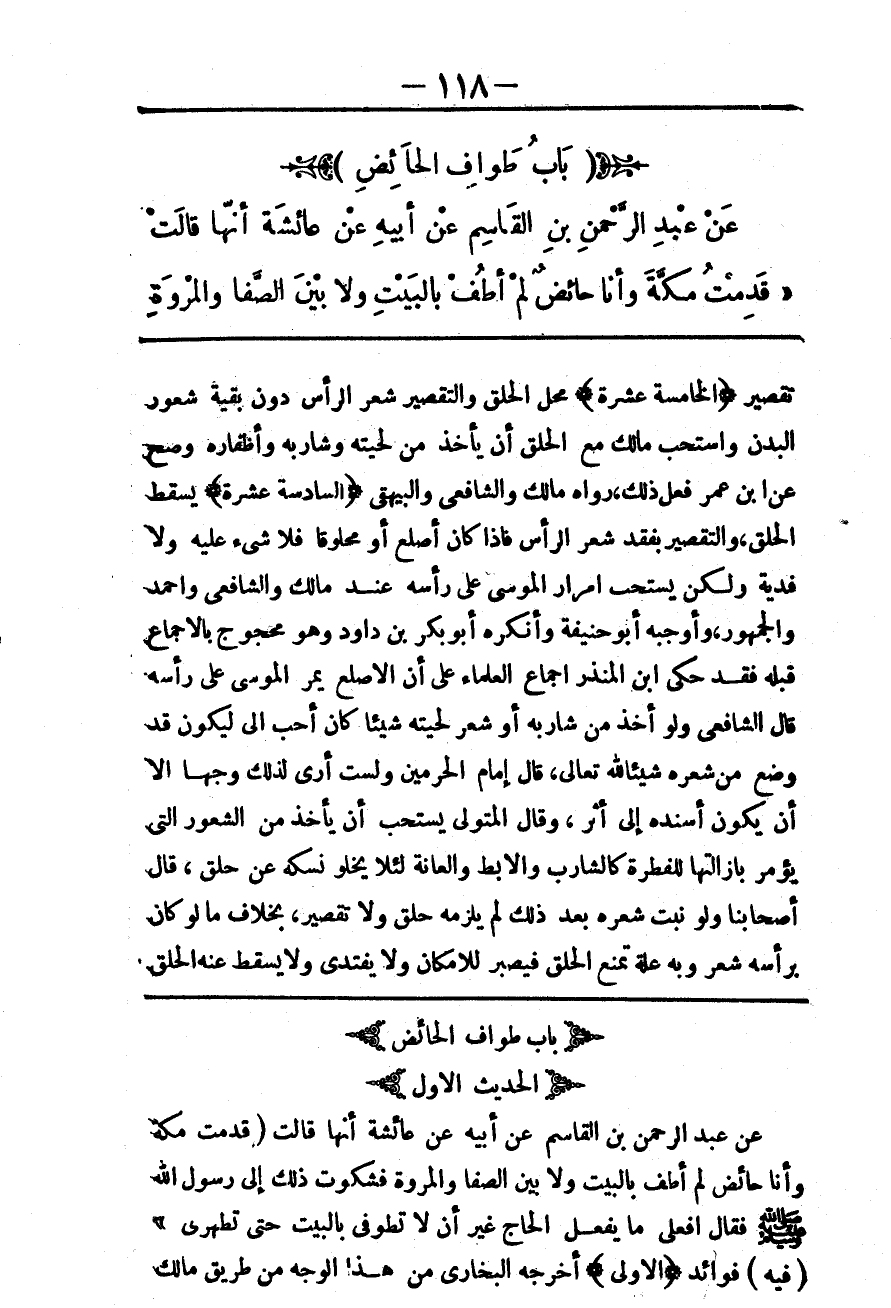 — ١١٨ —
( بَابُ طَوافِ الحَائِضِ )
عَنْ عبْدِ الرَّحْمنِ بنِ القَاسِمِ عنْ أبيهِ عنْ عائشَة أنهَّا قالَتْ
« قَدِمْتُ مكَّةَ وأنا حائضٌ لمْ أطُفْ بالبَيَتِ ولا بيْنَ الصَّفا والمرْوَةِ
تقصير ﴿الخامسة عشرة﴾ محل الحلق والتقصير شعر الرأس دون بقية شعور
البدن واستحب مالك مع الحلق أن يأخذ من لحيته وشاربه وأظفاره وصح
عن ابن عمر فعل ذلك، رواه مالك والشافعى والبيهقى ﴿السادسة عشرة﴾ يسقط
الحلق، والتقصير بفقد شعر الرأس فاذا كان أصلع أو محلوقا فلا شىء عليه ولا
فدية ولكن يستحب امرار الموسى على رأسه عند مالك والشافعى واحمد
والجمهور، وأوجبه أبو حنيفة وأنكره أبو بكر بن داود وهو محجوج بالاجماع
قبله فقد حكى ابن المنذر اجماع العلماء على أن الاصلع يمر الموسى على رأسه
قال الشافعى ولو أخذ من شاربه أو شعر لحيته شيئا كان أحب الى ليكون قد
وضع من شعره شيئا لله تعالى، قال إمام الحرمين ولست أرى لذلك وجها الا
أن يكون أسنده إلى أثر ، وقال المتولى يستحب أن يأخذ من الشعور التى
يؤمر بازالتها للفطرة كالشارب والابط والعانة لئلا يخلو نسكه عن حلق ، قال
أصحابنا ولو نبت شعره بعد ذلك لم يلزمه حلق ولا تقصير، بخلاف ما لو كان
برأسه شعر وبه علة تمنع الحلق فيصبر للامكان ولا يفتدى ولا يسقط عنه الحلق.
باب طواف الحائض
الحديث الاول
عن عبد الرحمن بن القاسم عن أبيه عن عائشة أنها قالت ( قدمت مكة
وأنا حائض لم أطف بالبيت ولا بين الصفا والمروة فشكوت ذلك إلى رسول الله
ﷺ فقال افعلى ما يفعل الحاج غير أن لا تطوفى بالبيت حتى تطهرى »
( فيه ) فوائد ﴿الاولى﴾ أخرجه البخارى من هذا الوجه من طريق مالك